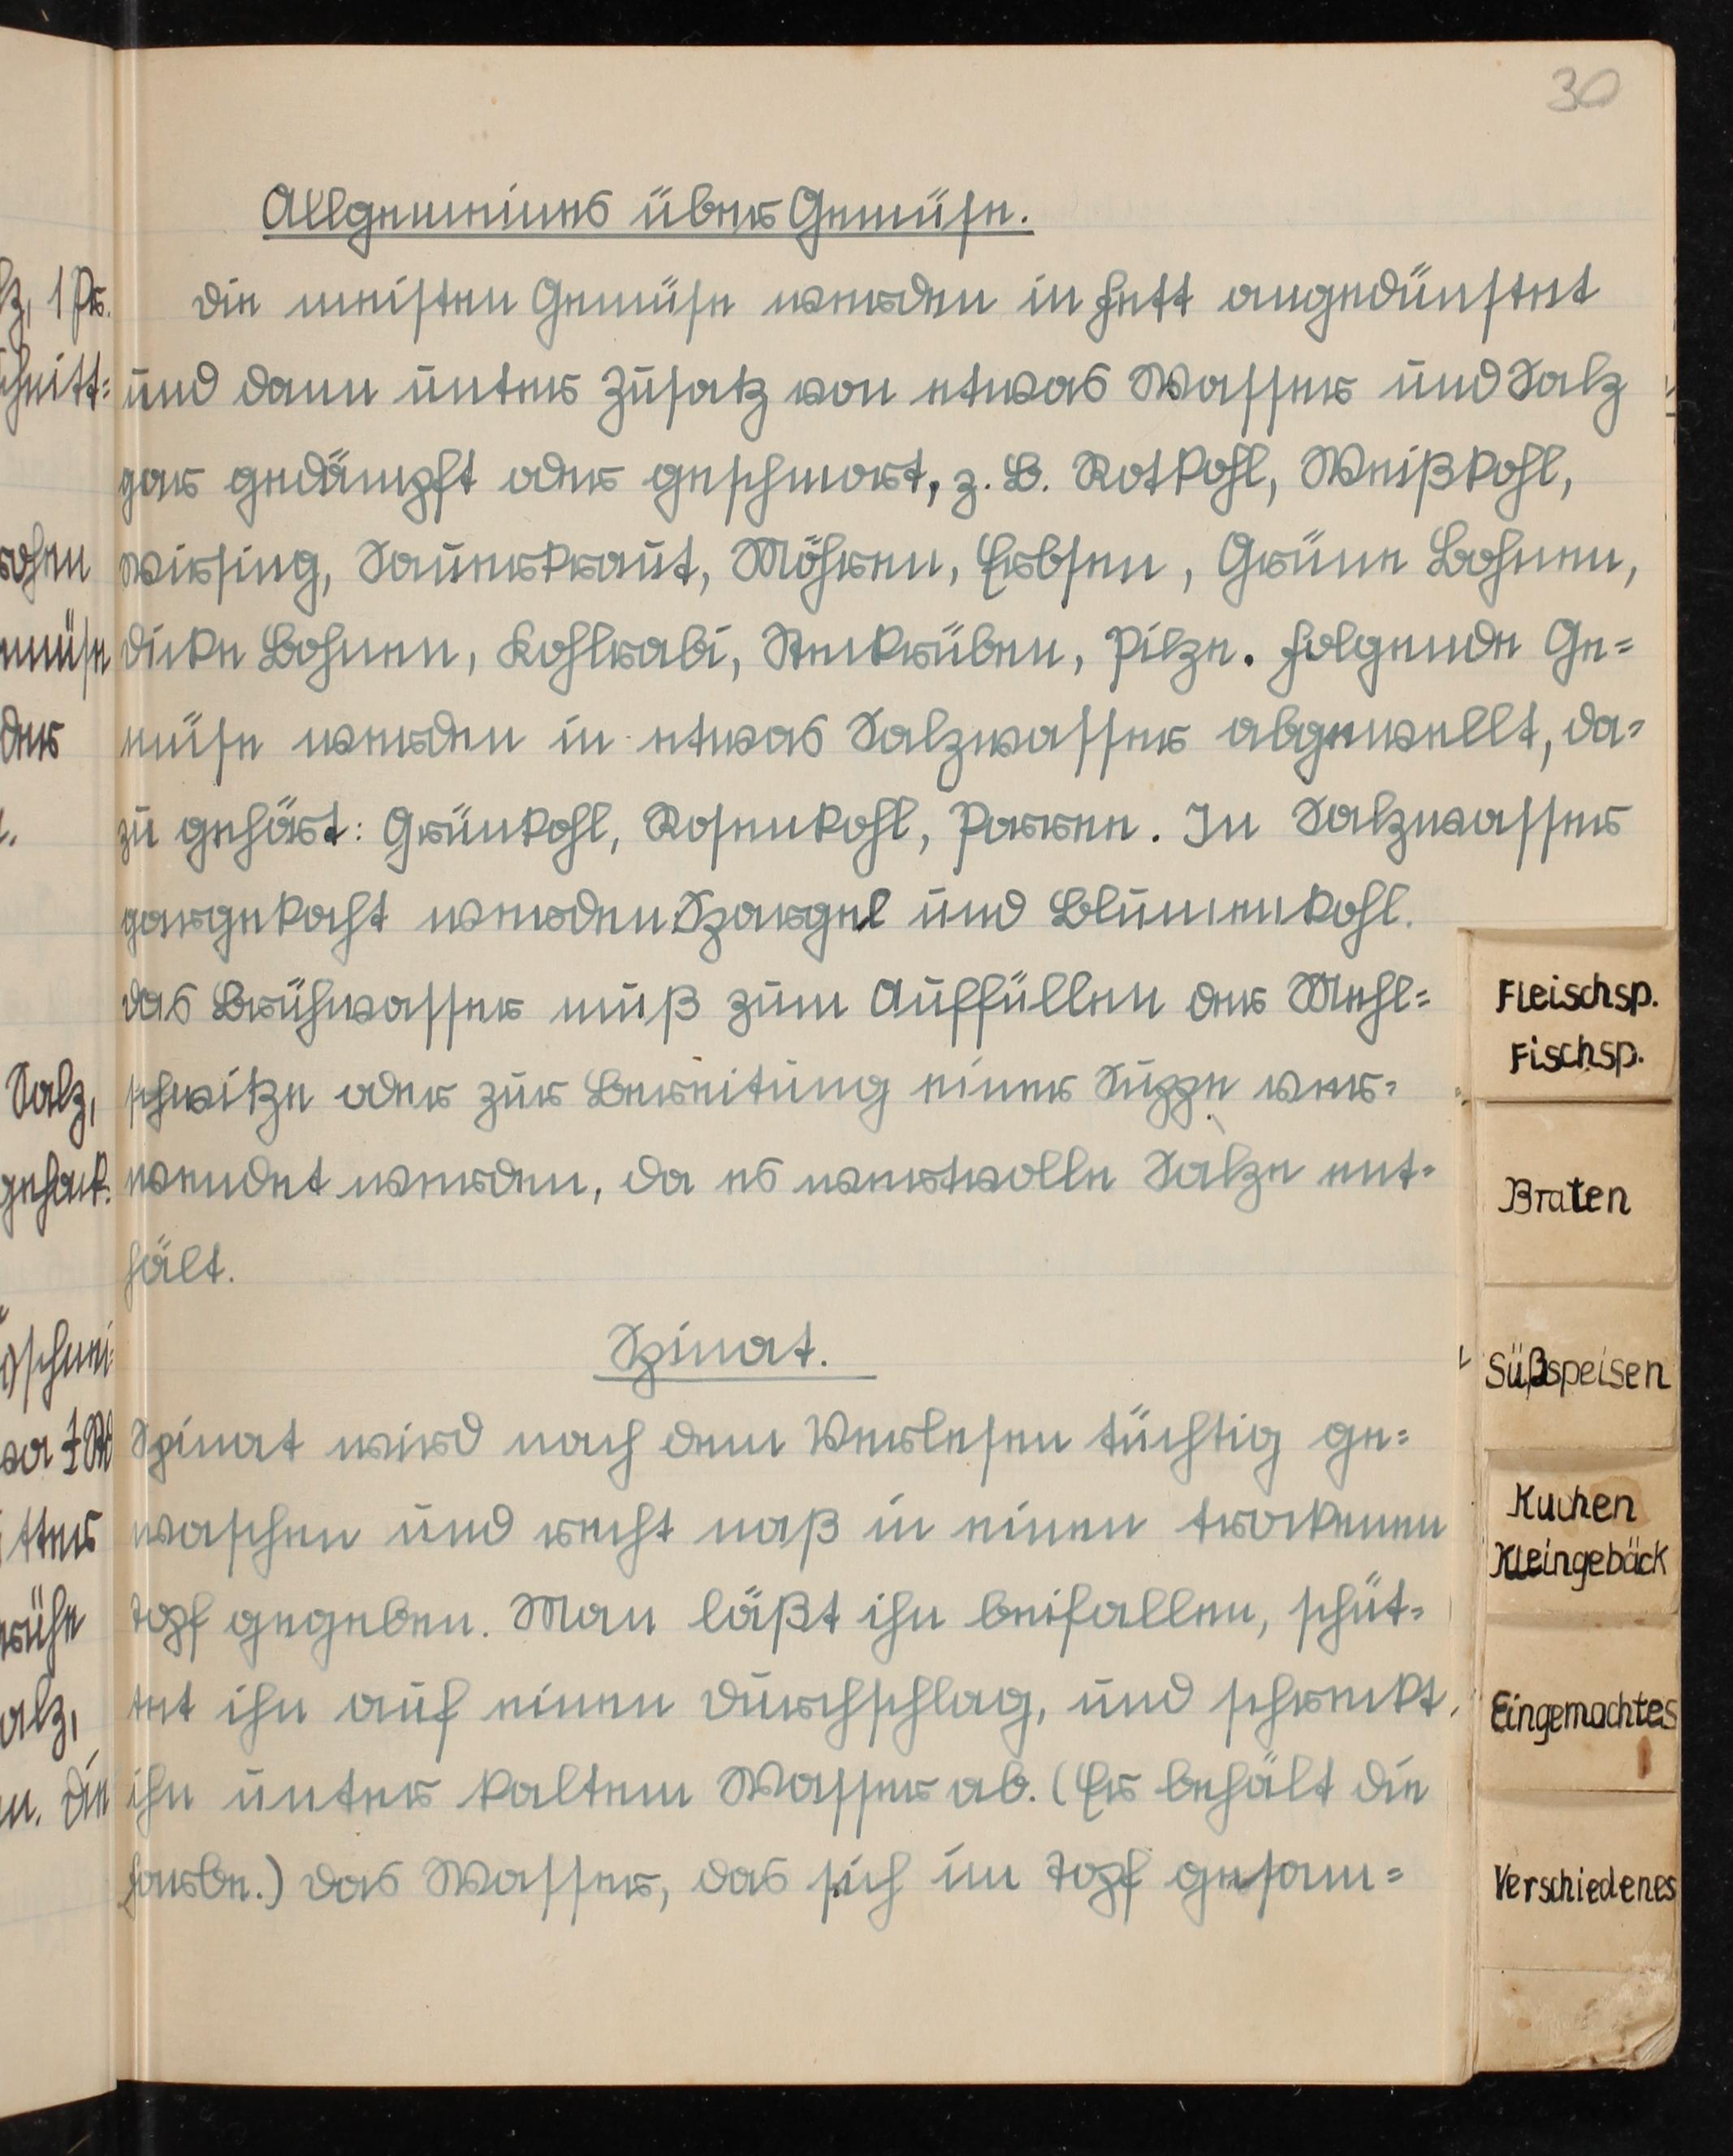 30
Allgemeines über Gemüse.
Die meisten Gemüse werden in Fett angedünstet
und dann unter Zusatz von etwas Wasser und Salz
gar gedämpft oder geschmort, z. B. Rotkohl, Weißkohl,
Wirsing, Sauerkraut, Möhren, Erbsen, Grüne Bohnen,
dicke Bohnen, Kohlrabi, Steckrüben, Pilze. Folgende Ge=
müse werden in etwas Salzwasser abgewellt, da=
zu gehört: Grünkohl, Rosenkohl, Porree. In Salzwasser
gargekocht werden Spargel und Blumenkohl.
Das Brühwasser muß zum Auffüllen der Mehl=
schwitze oder zur Bereitung einer Suppe ver=
wendet werden, da es wertvolle Salze ent=
hält.
Spinat.
Spinat wird nach dem Verlesen tüchtig ge=
waschen und recht naß in einen trockenen
Topf gegeben. Man läßt ihn beifallen, schüt=
tet ihn auf einen Durchschlag, und schreckt
ihn unter kaltem Wasser ab. (Er behält die
Farbe.) Das Wasser, das sich im Topf gesam=
Fleischsp.
Fischsp.
Braten
Süßspeisen
Kuchen
Kleingebäck
Eingemachtes
Verschiedenes
lz, 1 Pr.
chnitt=
rohen
müse
der
Salz,
gehack.
schnei=
tter
rühe
alz,
n. Die